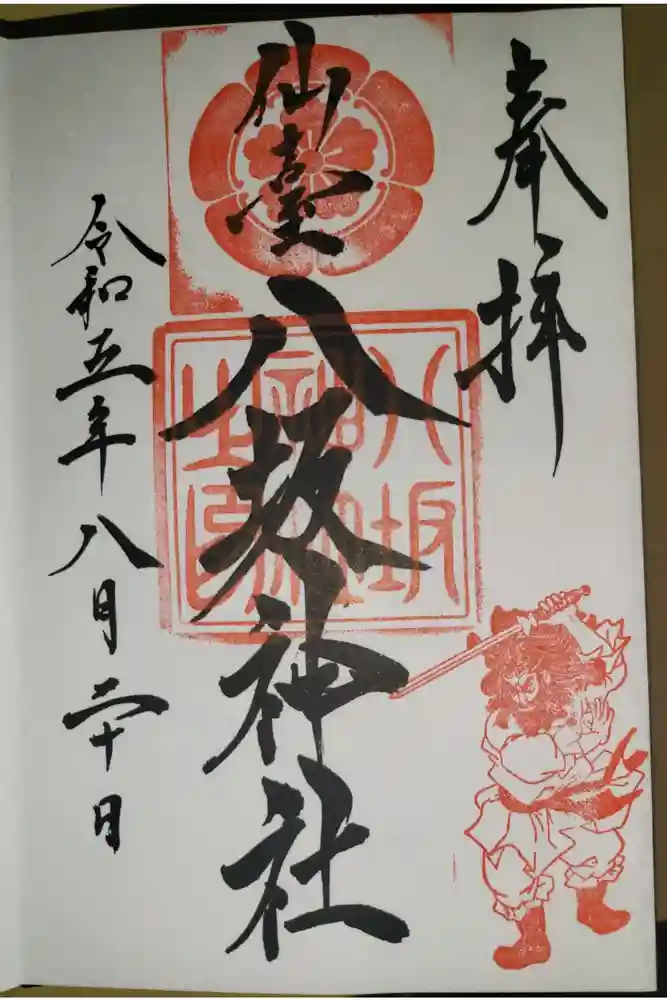 奉拝
仙臺
八坂神社
八坂
神社
之印
令和五年八月二十日